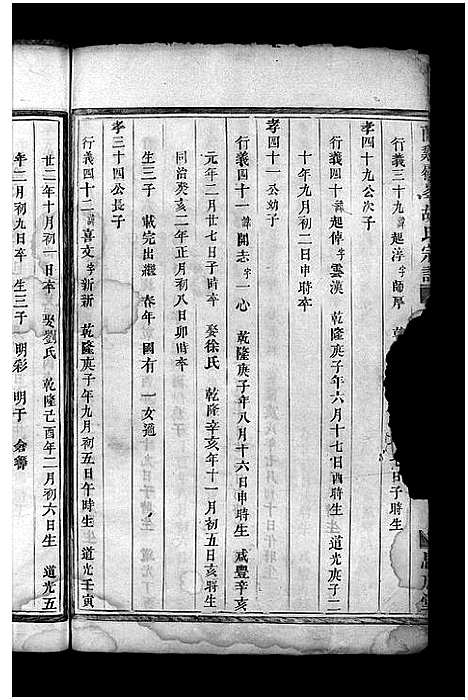 胡氏宗譜
行義三十九諱起淳字師厚 乾 日子時生
孝四十九公次子
行義四十諱起倬字雲漢 乾隆庚子年六月十七日酉時生 道光庚子二
十年九月初二日申時卒
孝四十一公幼子
行義四十一諱開志字一心 乾隆庚子年八月十六日申時生 咸豐辛亥
元年二月廿七日子時卒 娶徐氏 乾隆辛亥年十一月初五日亥時生
同治癸亥二年正月初八日卯時卒
生三子 載完出繼 春年 國有 一女適
孝三十四公長子
行義四十二諱喜文字新新 乾隆庚子年九月初五日午時生 道光壬寅
廿二年十月初一日卒 娶劉氏 乾隆己酉年二月初六日生 道光五
年二月初九日卒 生三子 明彩 明于 會聯